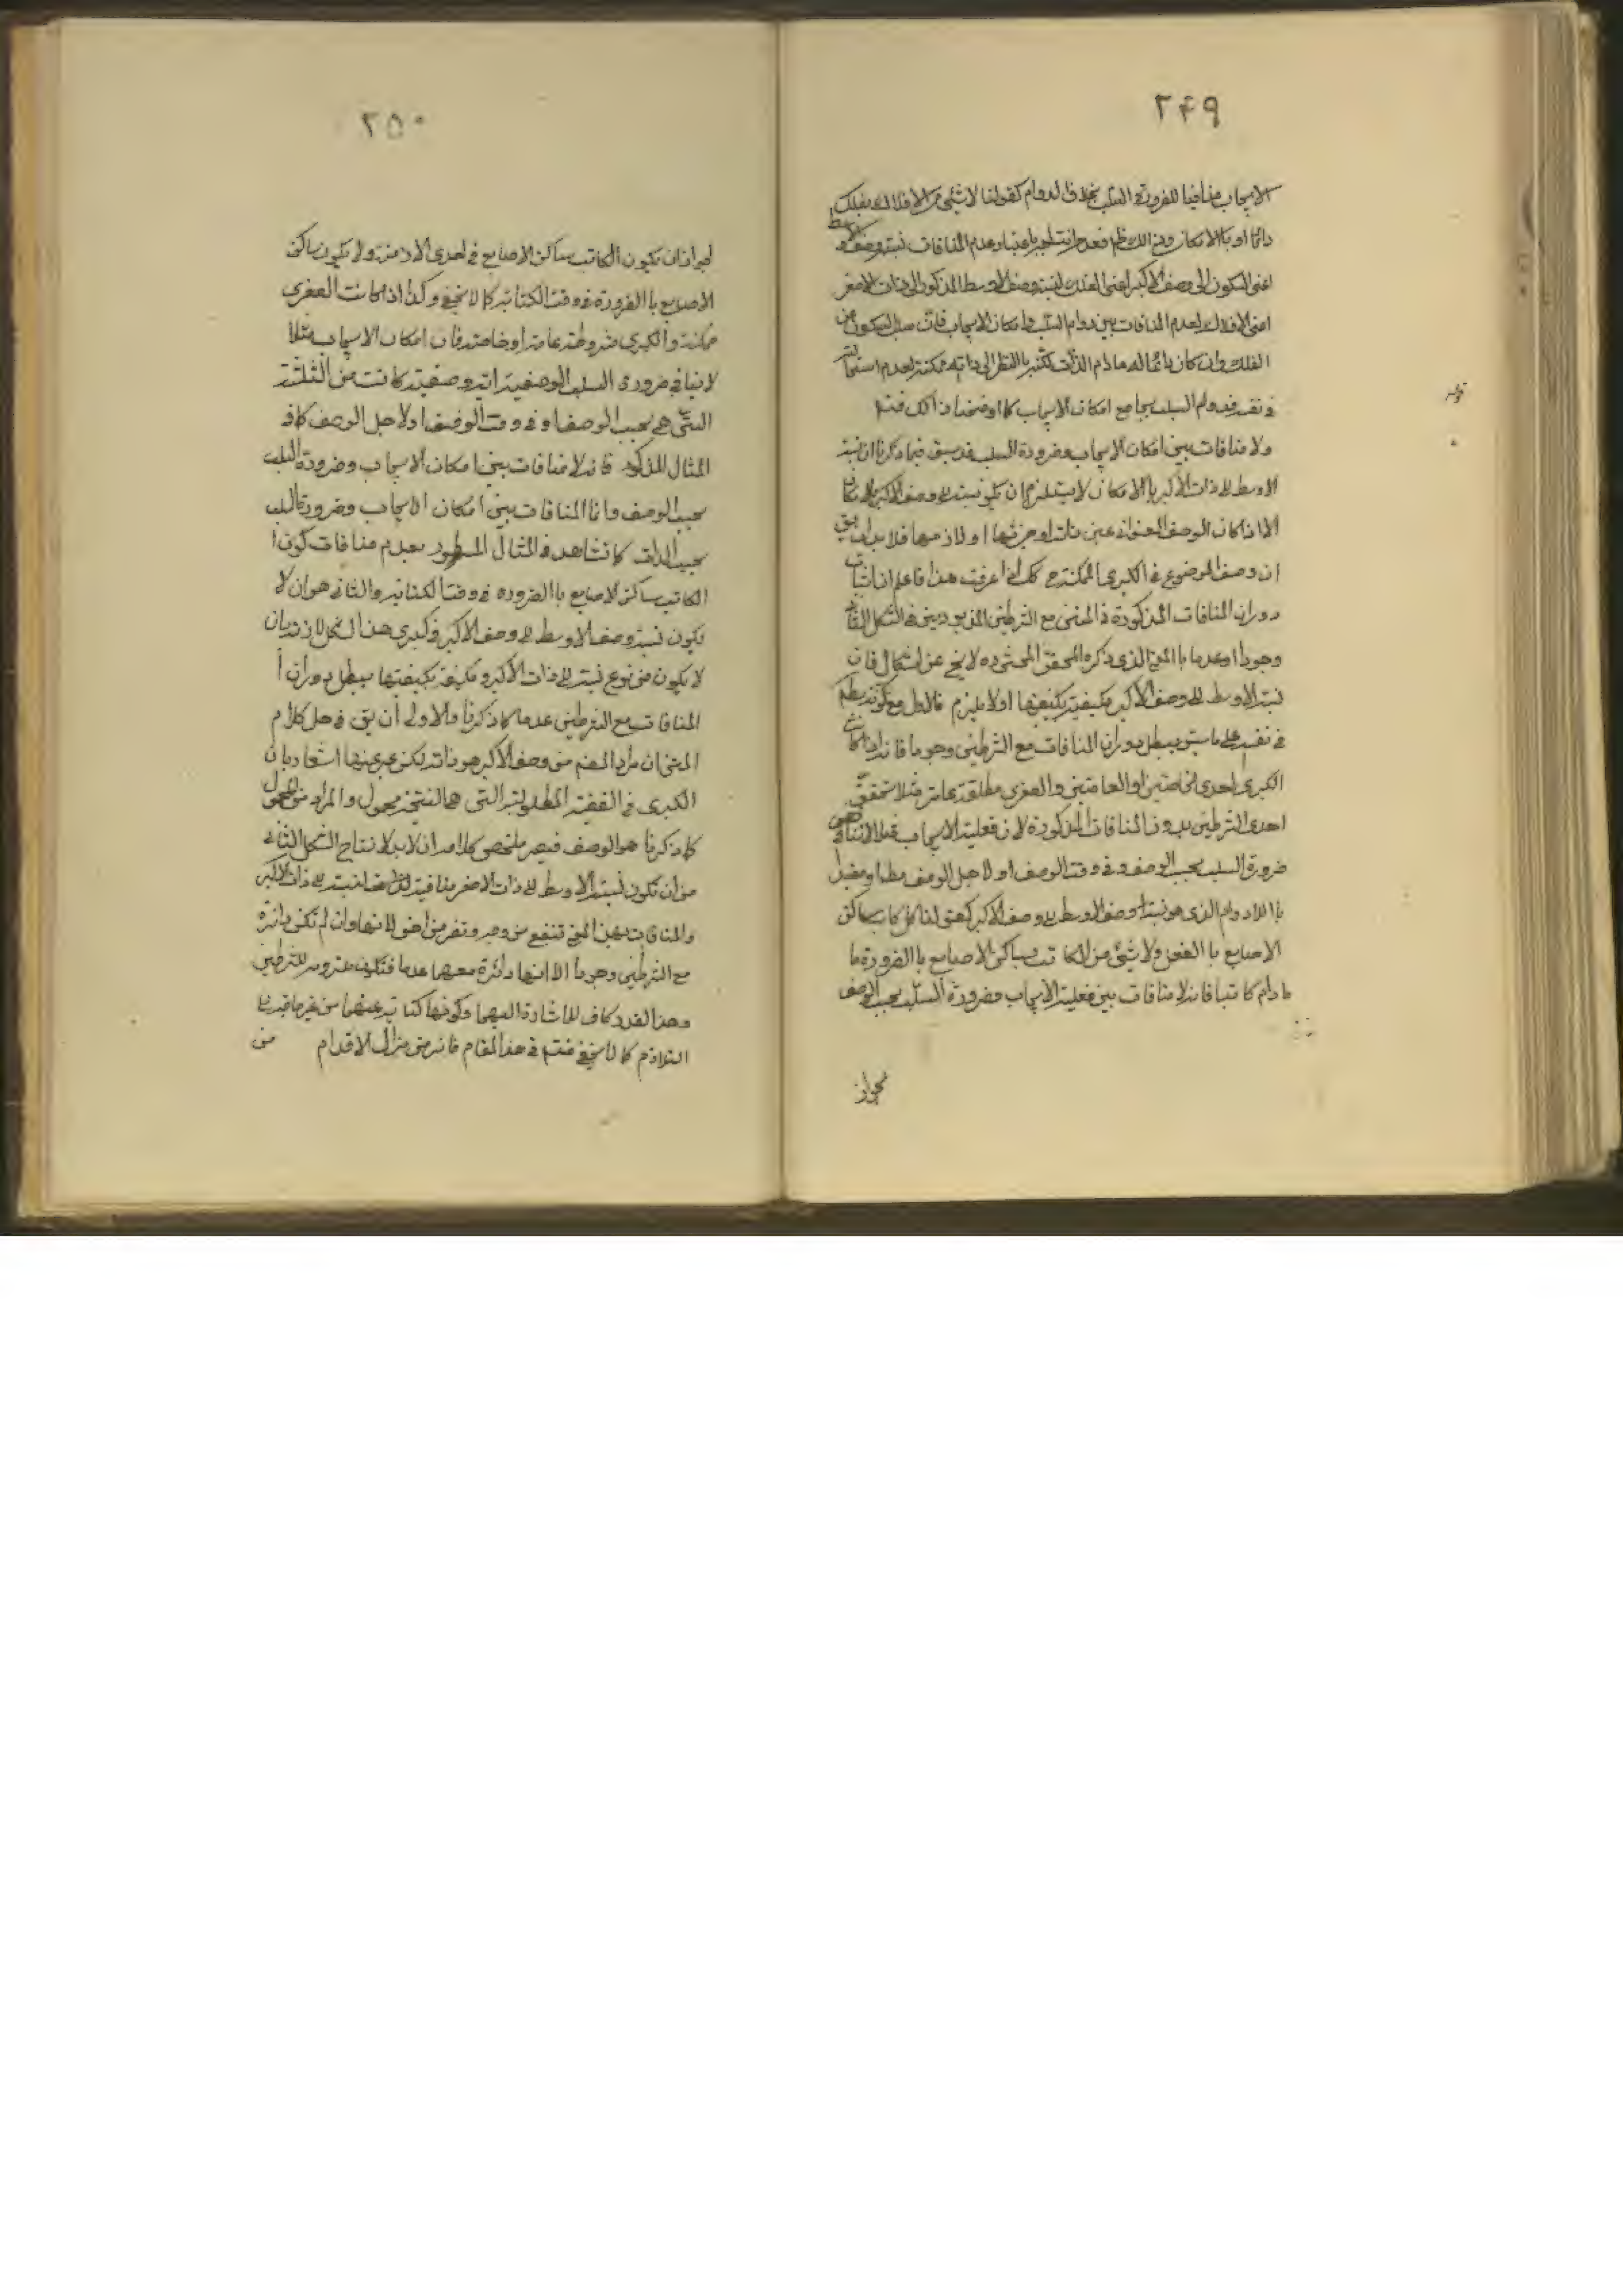 ٢٤٩
الايجاب منافيا للضرورة السلب بخلاف الدوام كقولنا لا شئ من الافلاك بفلك
دائما او بالامكان
اعنى السكون الى وصف الاكبر اعنى الفلك لنسبة وصف الاوسط المذكور الى ذات الاصغر
اعنى الافلاك لعدم المنافات بين دوام السلب وامكان الايجاب فان سلب السكون عن
الفلك وان كان دائما له مادام الذات لكنه بالنظر الى ذاته ممكنة لعدم
دوام السلب يجامع امكان الايجاب كما اوضحنا ذلك فتدبر
قوله
ولا منافات بين امكان الايجاب وضرورة السلب قد سبق فيما ذكرنا ان نسبة
الاوسط الى ذات الاكبر بالامكان لا يستلزم ان يكون نسبته الى وصف الاكبر بالامكان
الا اذا كان الوصف العنوانى عين ذاته او جزئها او لازمها فلا بد ان يق
ان وصف الموضوع فى الكبرى الممكنة ح كك اذا عرفت هذا فاعلم ان اثبات
دوران المنافات المذكورة فى المتن مع الشرطين المذبورين فى الشكل الثانى
وجودا وعدما بالمعنى الذى ذكره المحقق المحشى ره لا يخ عن اشكال فان
نسبة الاوسط الى وصف الاكبر مكيفية بكيفيتها او لا يلزم فالاول مع كونه
فى نفسه على ما سبق يبطل دوران المنافات مع الشرطين وجودا فانه اذا كانت
الكبرى احدى الخاصتين او العامتين والصغرى مطلقة عامة مثلا يتحقق
احدى الشرطين بدون المنافات المذكورة لان فعلية الايجاب مثلا لا تنافى
ضرورة السلب بحسب الوصف او فى وقت الوصف او لاجل الوصف مطلقا او مقيدا
باللادوام الذى هو نسبة وصف الاوسط الى وصف الاكبر كقولنا كل كاتب ساكن
الاصابع باالفعل ولا شئ من الكاتب بساكن الاصابع باالضرورة ما
مادام كاتبا فانه لا منافات بين فعلية الايجاب وضرورة السلب بحسب الوصف
لجواز
٢٥٠
لجواز ان يكون الكاتب ساكن الاصابع فى احدى الازمنة ولا يكون ساكن
الاصابع باالضرورة فى وقت الكتابة كما لا يخفى وكذا اذا كانت الصغرى
ممكنة والكبرى مشروطة عامة او خاصة فان امكان الايجاب مثلا
لا ينافى ضرورة السلب الوصفية اية وصفية كانت من الثلثة
التى هى بحسب الوصف او فى وقت الوصف او لاجل الوصف كما فى
المثال المذكور فانه لا منافات بين امكان الايجاب وضرورة السلب
بحسب الوصف وانما المنافات بين امكان الايجاب وضرورة السلب
بحسب الذات كما تشاهد فى المثال المسطور بعدم منافات كون
الكاتب ساكن الاصابع باالضرورة فى وقت الكتابة والثانى هو ان لا
يكون نسبة وصف الاوسط الى وصف الاكبر فى كبرى هذا الشكل
لا يكون من نوع نسبته الى ذات الاكبر ومكيفة بكيفيتها يبطل دوران
المنافات مع الشرطين عدما كما ذكرنا والاولى ان يق فى حل كلام
المتن ان مراد المصنف من وصف الاكبر هو ذاته لكن عبر عنها اشعارا بان
الكبرى فى القضية المطلوبة التى هى النتيجة محمول والمراد من المحمول
كما ذكرنا هو الوصف فيصير ملخص كلامه ان لا بد لانتاج الشكل الثانى
من ان يكون نسبة الاوسط الى ذات الاصغر منافية لنسبته الى ذات الاكبر
والمنافات بهذا المعنى تنفع من وجه وتضر من اخر لانها وان لم تكن دائرة
مع الشرطين وجودا الا انها دائرة معهما عدما فتكون ملزومة للشرطين
وهذا القدر كاف للاشارة اليهما وكونها كناية عنهما من غير
التلازم كما لا يخفى فتدبر فى هذا المقام فانه من مزال الاقدام من